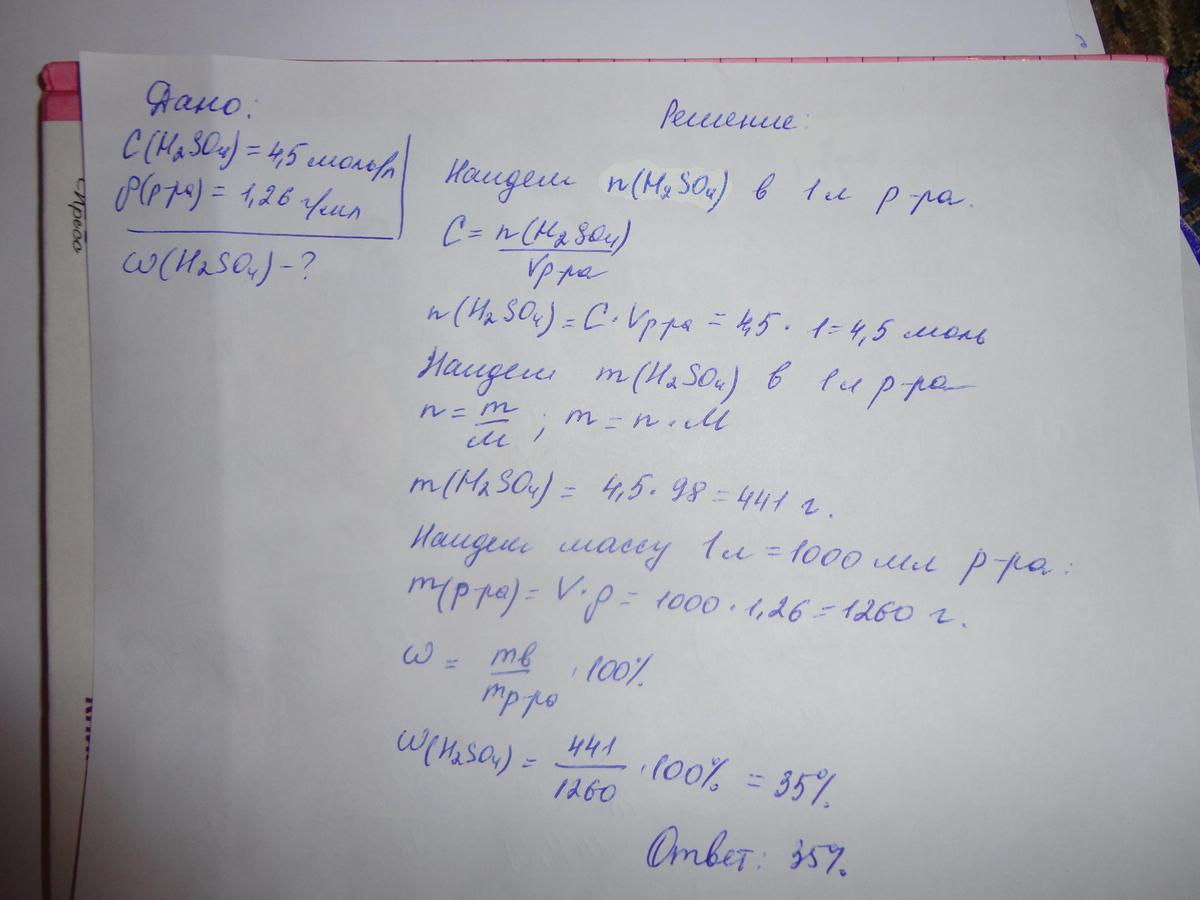 Дано:
C(H₂SO₄) = 4,5 моль/л
ρ(р-ра) = 1,26 г/мл
ω(H₂SO₄) - ?
Решение:
Найдем n(H₂SO₄) в 1 л р-ра.
C = n(H₂SO₄) / Vр-ра
n(H₂SO₄) = C · Vр-ра = 4,5 · 1 = 4,5 моль
Найдем m(H₂SO₄) в 1 л р-ра
n = m / M ; m = n · M
m(H₂SO₄) = 4,5 · 98 = 441 г.
Найдем массу 1 л = 1000 мл р-ра:
m(р-ра) = V · ρ = 1000 · 1,26 = 1260 г.
ω = mв / mр-ра · 100%
ω(H₂SO₄) = 441 / 1260 · 100% = 35%
Ответ: 35%